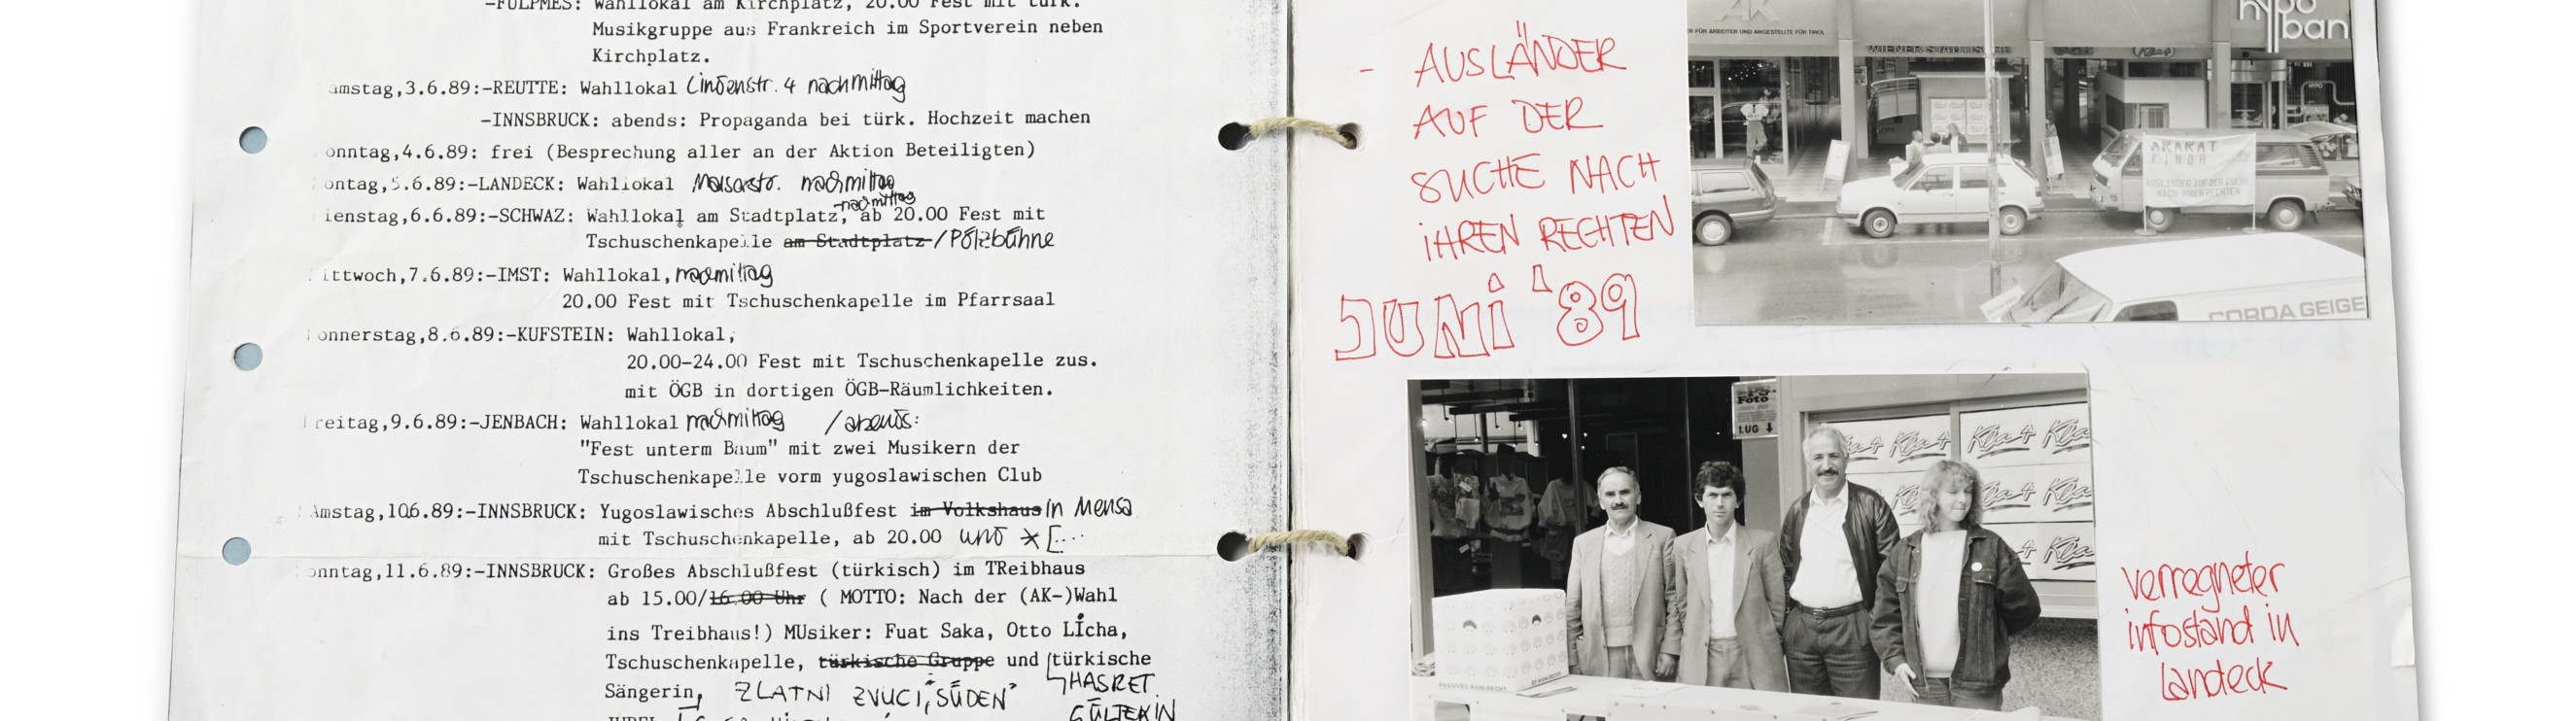 -FULPMES: Wahllokal am Kirchplatz, 20.00 Fest mit türk.
Musikgruppe aus Frankreich im Sportverein neben
Kirchplatz.
amstag,3.6.89:-REUTTE: Wahllokal Lindenstr. 4 nachmittag
-INNSBRUCK: abends: Propaganda bei türk. Hochzeit machen
onntag,4.6.89: frei (Besprechung aller an der Aktion Beteiligten)
ontag,5.6.89:-LANDECK: Wahllokal Maisastr. nachmittag
nachmittag
ienstag,6.6.89:-SCHWAZ: Wahllokal am Stadtplatz, ab 20.00 Fest mit
Tschuschenkapelle am Stadtplatz /Pölzbühne
ittwoch,7.6.89:-IMST: Wahllokal, nachmittag
20.00 Fest mit Tschuschenkapelle im Pfarrsaal
onnerstag,8.6.89:-KUFSTEIN: Wahllokal,
20.00-24.00 Fest mit Tschuschenkapelle zus.
mit ÖGB in dortigen ÖGB-Räumlichkeiten.
reitag,9.6.89:-JENBACH: Wahllokal nachmittag /abends:
"Fest unterm Baum" mit zwei Musikern der
Tschuschenkapelle vorm yugoslawischen Club
Amstag,10.6.89:-INNSBRUCK: Yugoslawisches Abschlußfest im Volkshaus in Mensa
mit Tschuschenkapelle, ab 20.00 und *[...
onntag,11.6.89:-INNSBRUCK: Großes Abschlußfest (türkisch) im TReibhaus
ab 15.00/16.00 Uhr ( MOTTO: Nach der (AK-)Wahl
ins Treibhaus!) MUsiker: Fuat Saka, Otto Licha,
Tschuschenkapelle, türkische Gruppe und türkische
Sängerin, ZLATNI ZVUCI, "SÜDEN" HASRET
GÜLTEKIN
- AUSLÄNDER
AUF DER
SUCHE NACH
IHREN RECHTEN
JUNI '89
AK
FÜR ARBEITER UND ANGESTELLTE FÜR TIROL
WIENER STÄDTISCHE
hypo
ban
ARARAT
AUSLÄNDER AUF DER SUCHE
NACH IHREN RECHTEN
CORDA GEIGE
Foto
1.UG
Kla4 Kla4 Kla
PASSIVES WAHLRECHT
verregneter
infostand in
Landeck